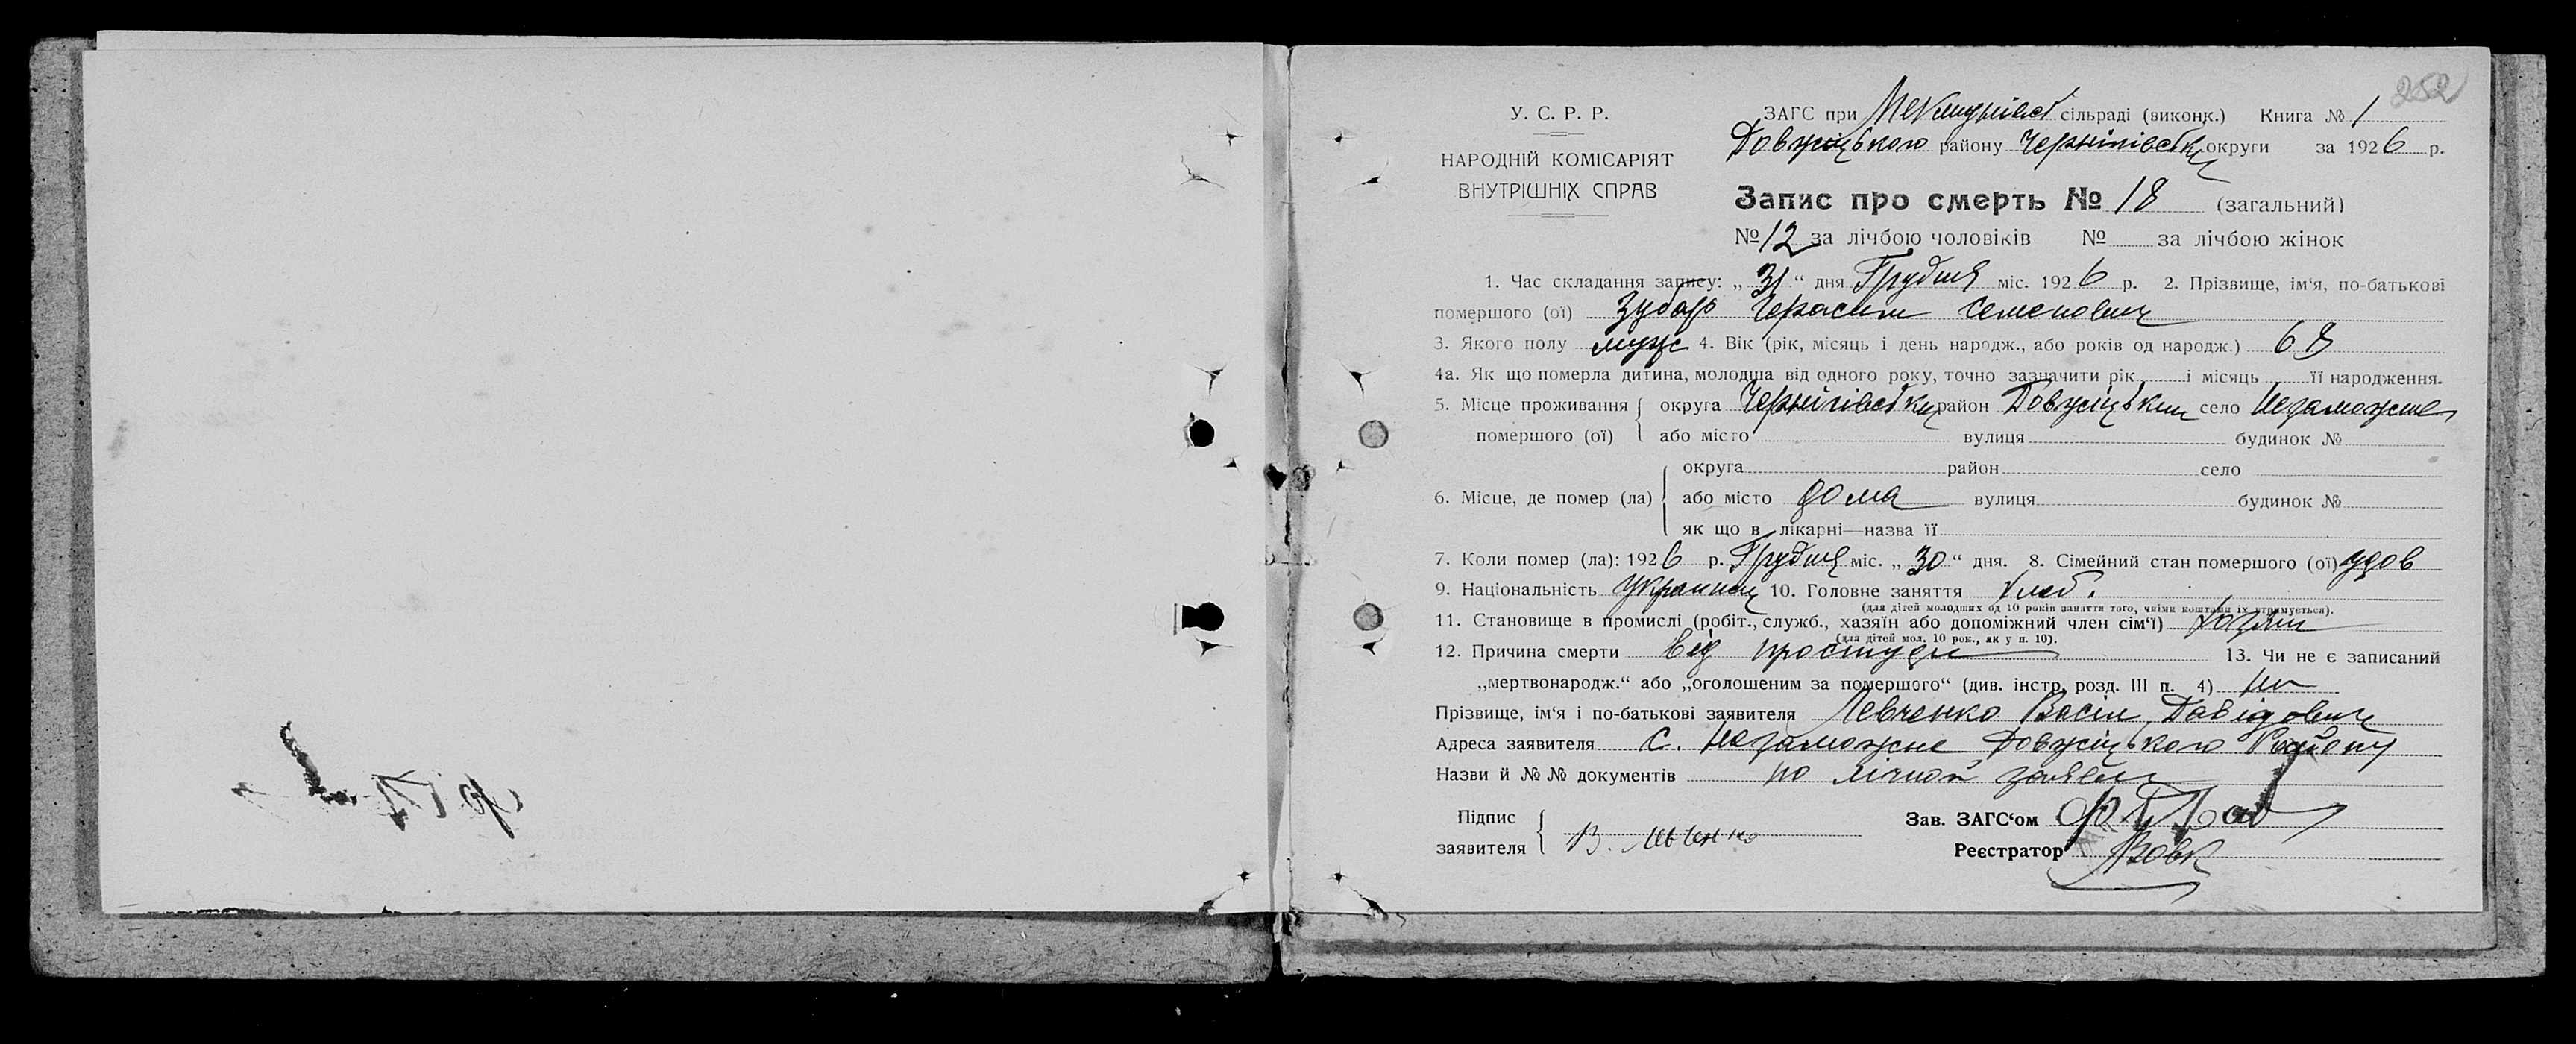 252
У. С. Р. Р.
НАРОДНІЙ КОМІСАРІЯТ
ВНУТРІШНІХ СПРАВ
ЗАГС при сільраді (виконк.) Книга № 1
Довжицького району Чернігівськ округи за 1926 р.
Запис про смерть № 18 (загальний)
№ 12 за лічбою чоловіків № за лічбою жінок
1. Час складання запису: „31“ дня Грудня міс. 1926 р. 2. Прізвище, ім‘я, по-батькові
помершого (ої) Зубарь Герасим Семенович
3. Якого полу муж 4. Вік (рік, місяць і день народж., або років од народж.) 68
4а. Як що померла дитина, молодша від одного року, точно зазначити рік і місяць її народження.
5. Місце проживання округа Чернігівськ район Довжицьким село Незаможне
помершого (ої) або місто вулиця будинок №
округа район село
6. Місце, де помер (ла) або місто дома вулиця будинок №
як що в лікарні—назва її
7. Коли помер (ла): 1926 р. Грудня міс. „30“ дня. 8. Сімейний стан помершого (ої) удов
9. Національність Украинец 10. Головне заняття хлеб.
(для дітей молодших од 10 років заняття того, чиїми коштами їх утримується).
11. Становище в промислі (робіт., служб., хазяїн або допоміжний член сім‘ї) хазяин
(для дітей мол. 10 рок., як у п. 10).
12. Причина смерти від простуди 13. Чи не є записаний
„мертвонародж.“ або „оголошеним за помершого“ (див. інстр. розд. III п. 4) ни
Прізвище, ім‘я і по-батькові заявителя Левченко Васіл Давідович
Адреса заявителя с. Незаможне Довжицького Району
Назви й №№ документів по лічной заявы
Підпис
заявителя В. Левченко
Зав. ЗАГС‘ом
Реєстратор Вовк